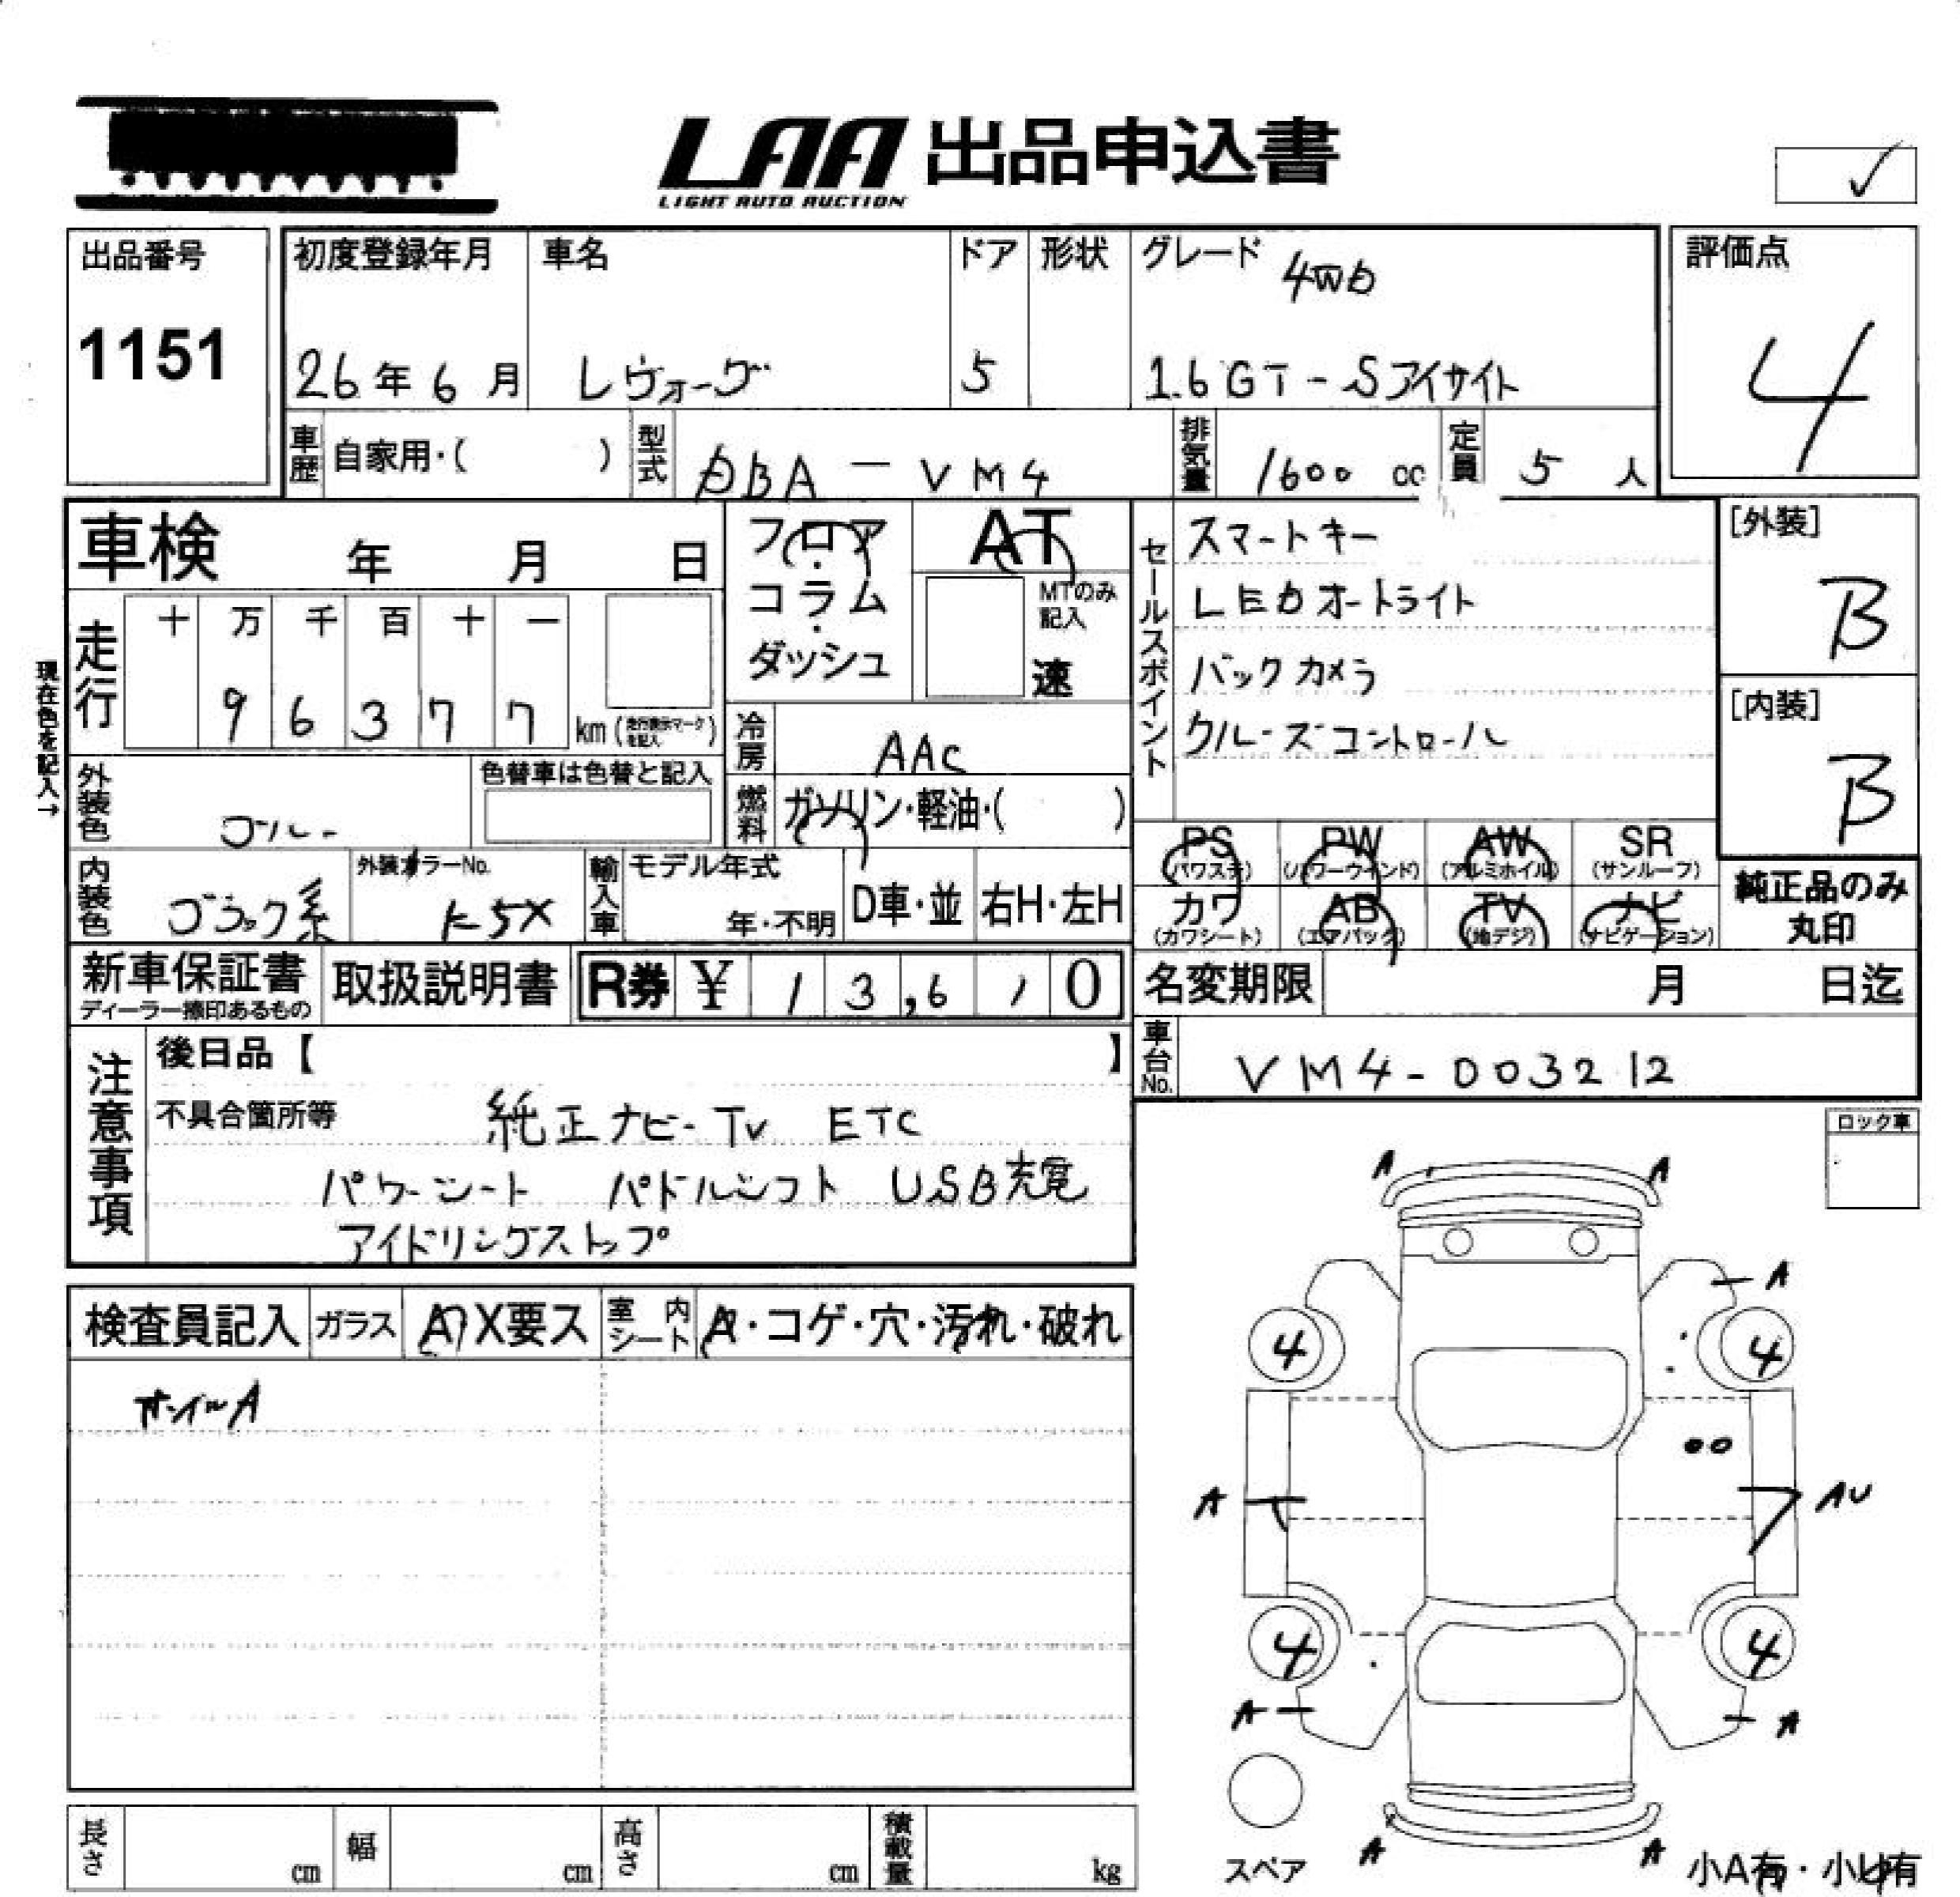 LAA 出品申込書
LIGHT AUTO AUCTION
出品番号
1151
初度登録年月
26年6月
車名
レヴォーグ
ドア
5
形状
グレード 4WD
1.6GT-Sアイサイト
評価点
4
車歴 自家用・( )
型式 DBA-VM4
排気量 1600 cc
定員 5人
車検 年 月 日
フロア・コラム・ダッシュ
AT
MTのみ記入
速
セールスポイント
スマートキー
LEDオートライト
バックカメラ
クルーズコントロール
[外装]
B
[内装]
B
現在色を記入→
走行
十 万 千 百 十 一
9 6 3 7 7 km (走行表示マークを記入)
冷房 AAC
燃料 ガソリン・軽油・( )
外装色 ブルー
色替車は色替と記入
内装色 ブラック系
外装カラーNo.
K5X
輸入車
モデル年式
年・不明
D車・並
右H・左H
PS (パワステ)
PW (パワーウインド)
AW (アルミホイル)
SR (サンルーフ)
カワ (カワシート)
AB (エアバック)
TV (地デジ)
ナビ (ナビゲーション)
純正品のみ丸印
新車保証書
ディーラー捺印あるもの
取扱説明書
R券 ¥ 13,610
名変期限 月 日迄
車台No. VM4-003212
注意事項
後日品【 】
不具合箇所等 純正ナビ-TV ETC
パワーシート パドルシフト USB充電
アイドリングストップ
ロック車
検査員記入
ガラス A X要ス
室内シート A・コゲ・穴・汚れ・破れ
ホイルA
A A
A
4 4
A AU
4 4
A A
スペア
A A
小A有・小U有
長さ cm
幅 cm
高さ cm
積載量 kg